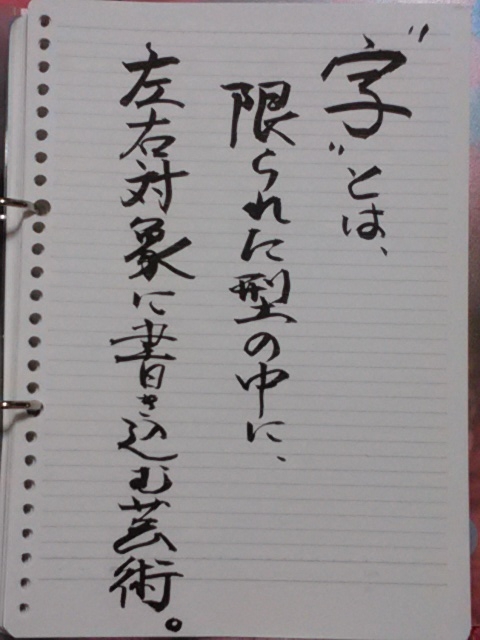 "字"とは、
限られた型の中に、
左右対象に書き込む芸術。